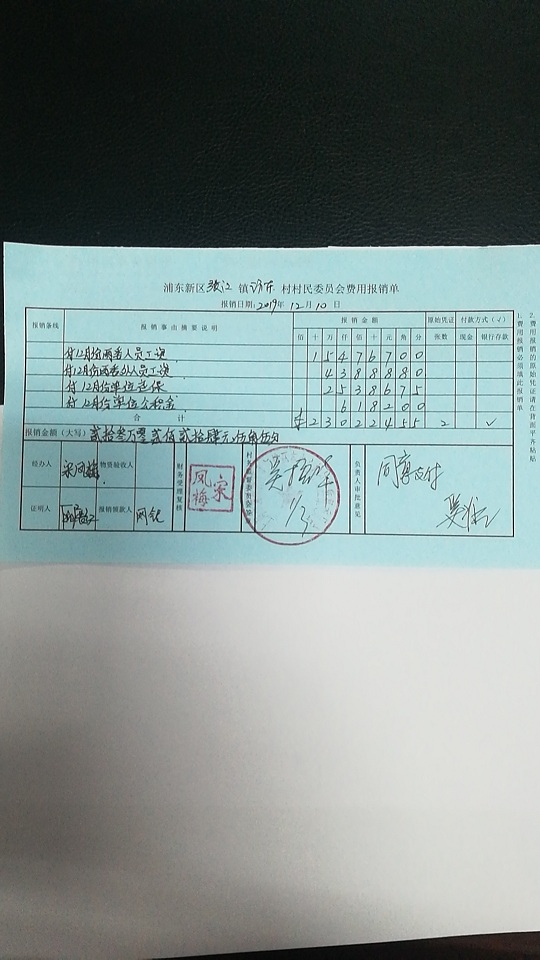 浦东新区张江镇 村村民委员会费用报销单
报销日期:2019年12月10日
报销条线 报销事由摘要说明 报销金额 原始凭证 付款方式(√)
佰 十 万 仟 佰 十 元 角 分 张数 现金 银行存款
付12月份两委人员工资 1 5 4 7 6 7 0 0
付12月份两委外人员工资 4 3 8 8 8 8 0
付12月份单位社保 2 5 3 8 6 7 5
付12月份单位公积金 6 1 8 2 0 0
合计 ¥ 2 3 0 2 2 4 5 5 2 √
报销金额(大写)贰拾叁万零贰佰贰拾肆元伍角伍分
经办人 宋凤梅 物资验收人 财务受理复核 凤梅宋 负责人审批意见 同意支付
证明人 报销领款人 网银
1.费用报销必须填此报销单
2.费用报销的原始凭证请在背面平齐粘贴